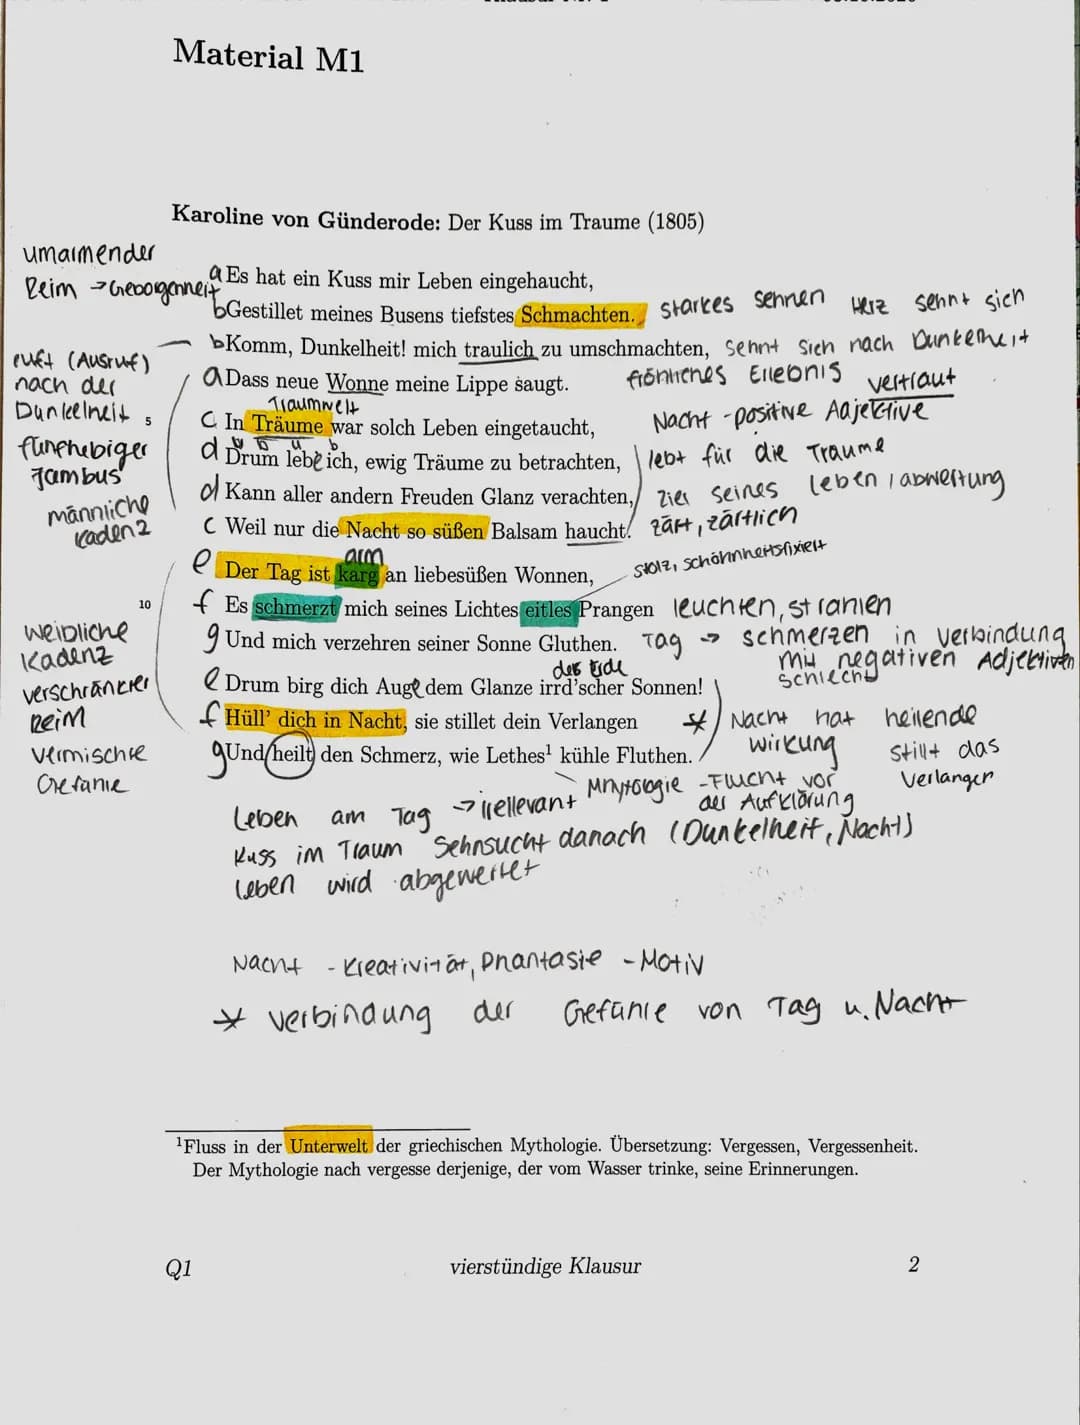 Material M1
Karoline von Günderode: Der Kuss im Traume (1805)
umarmender
Reim → Geborgenheit
a Es hat ein Kuss mir Leben eingehaucht,
b Gestillet meines Busens tiefstes Schmachten. starkes sehnen Herz sehnt sich
b Komm, Dunkelheit! mich traulich zu umschmachten, sehnt sich nach Dunkelheit
ruft (Ausruf)
nach der
Dunkelheit
a Dass neue Wonne meine Lippe saugt. fröhliches Erlebnis vertraut
Traumwelt
5 c In Träume war solch Leben eingetaucht, Nacht - positive Adjektive
fünfhebiger
Jambus
d Drum leb' ich, ewig Träume zu betrachten, lebt für die Träume
d Kann aller andern Freuden Glanz verachten, Ziel seines Leben / abwertung
männliche
Kadenz
c Weil nur die Nacht so süßen Balsam haucht. zart, zärtlich
arm
e Der Tag ist karg an liebesüßen Wonnen, stolz, schönheitsfixiert
10 f Es schmerzt mich seines Lichtes eitles Prangen leuchten, strahlen
g Und mich verzehren seiner Sonne Gluthen. Tag → schmerzen in verbindung
mit negativen Adjektiven
schlecht
weibliche
Kadenz
der Erde
e Drum birg dich Aug' dem Glanze irrd'scher Sonnen!
verschränkter
Reim
f Hüll' dich in Nacht, sie stillet dein Verlangen * Nacht hat heilende
wirkung stillt das
Verlangen
vermischte
Gefühle
g Und heilt den Schmerz, wie Lethes¹ kühle Fluthen.
Mhytologie - Flucht vor
der Aufklärung
Leben am Tag → irellevant
Kuss im Traum Sehnsucht danach (Dunkelheit, Nacht)
Leben wird abgewertet
Nacht - Kreativität, Phantasie - Motiv
* Verbindung der Gefühle von Tag u. Nacht
¹Fluss in der Unterwelt der griechischen Mythologie. Übersetzung: Vergessen, Vergessenheit.
Der Mythologie nach vergesse derjenige, der vom Wasser trinke, seine Erinnerungen.
Q1 vierstündige Klausur 2